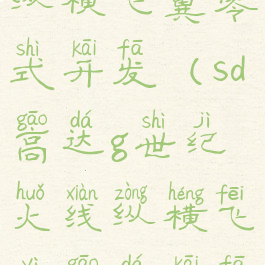 纵横飞翼零
shì kāi fā
式开发(sd
gāo dá shì jì
高达g世纪
huǒ xiàn zòng héng fēi
火线纵横飞
yì gāo dá kāi fā